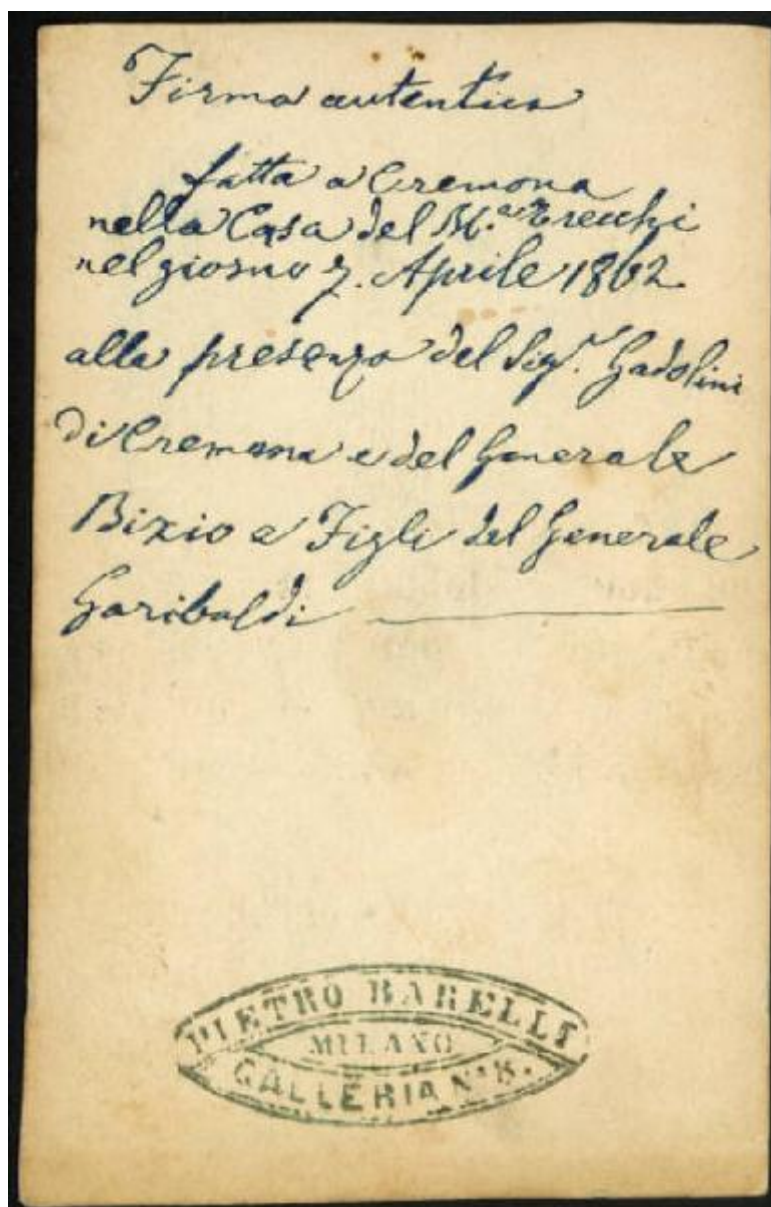 Firma autentica
fatta a Cremona
nella Casa del M.se Trecchi
nel giorno 7. Aprile 1862
alla presenza del Sigr. Gadolini
di Cremona e del Generale
Bixio e Figli del Generale
Garibaldi
PIETRO BARELLI
MILANO
GALLERIA N° 8.